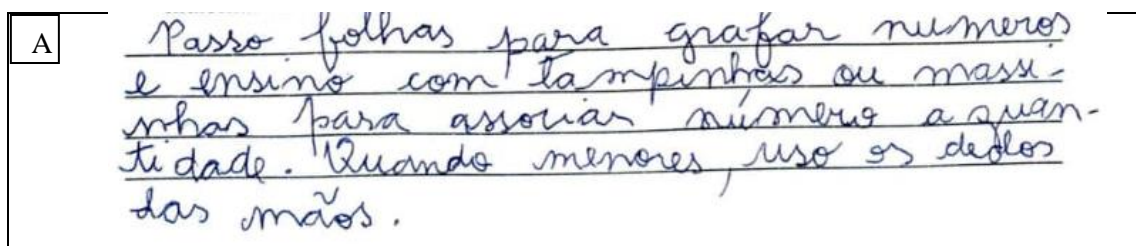 A
Passo folhas para grafar numeros
e ensino com tampinhas ou massi-
nhas para associar número a quan-
tidade. Quando menores, uso os dedos
das mãos.